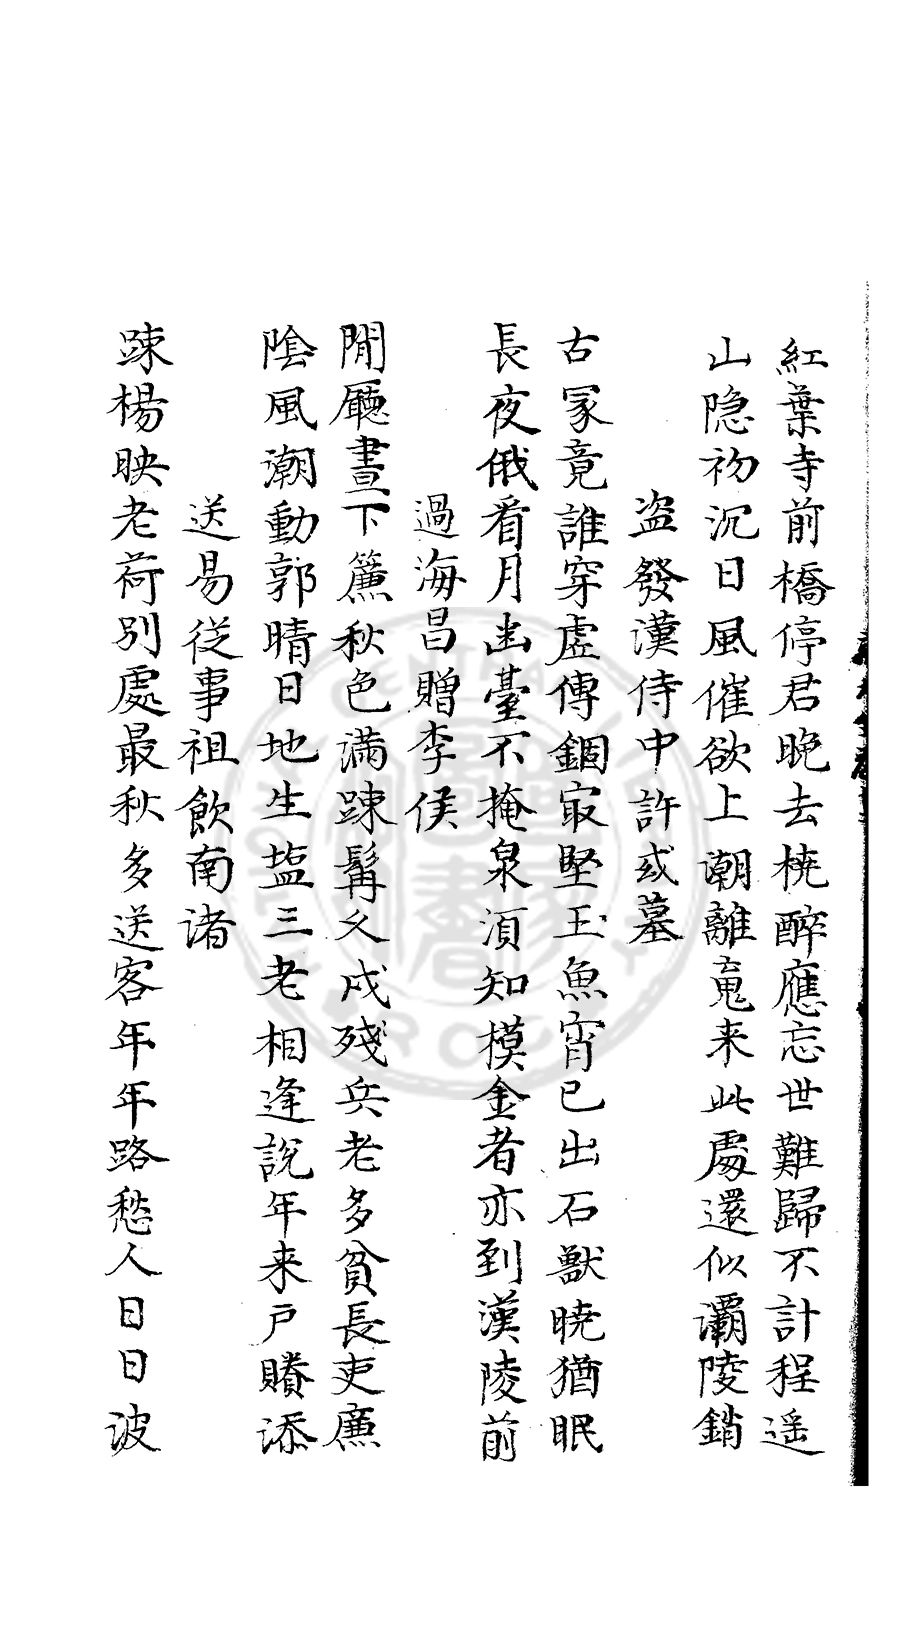 紅葉寺前橋停君晚去橈醉應忘世難歸不計程遥
山隐初沉日風催欲上潮離䰟来此處還似灞陵銷
盗發漢侍中許或墓
古冢竟誰穿虚傳錮㝡堅玉魚宵已出石獸曉猶眠
長夜俄看月幽臺不掩泉須知模金者亦到漢陵前
過海昌贈李侯
閒廳晝下簾秋色滿踈髯乆戍殘兵老多貧長吏廉
陰風潮動郭晴日地生塩三老相逢說年来戸賸添
送易従事祖飲南渚
踈楊映老荷别處最秋多送客年年路愁人日日波